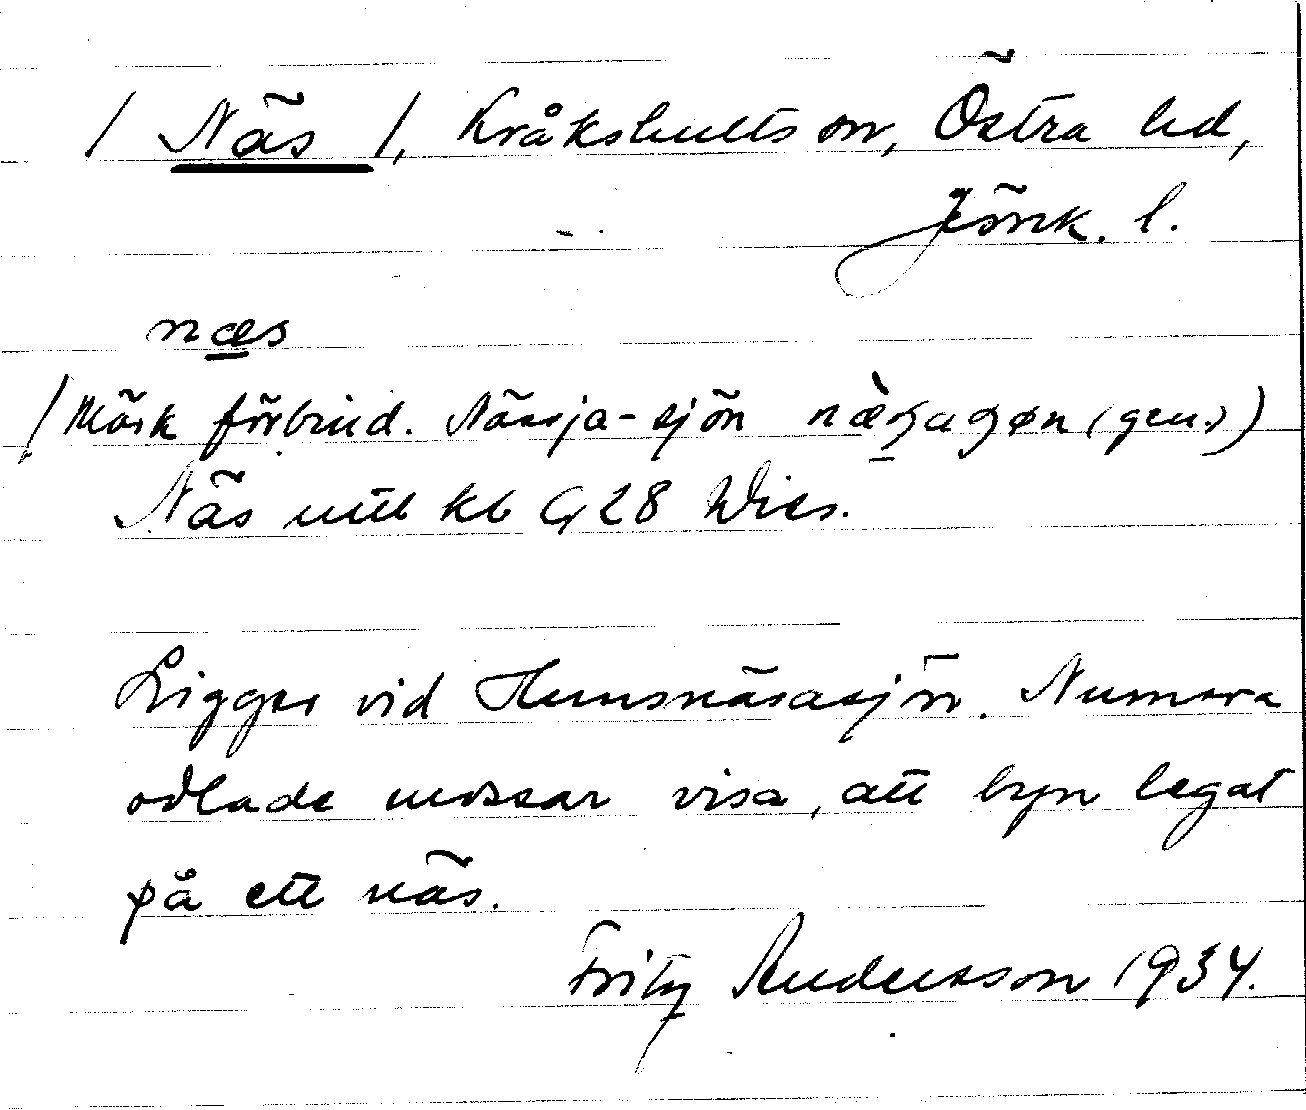 / Näs /, Kråkshults sn, Östra hd,
Jönk. l.
næs
/Märk förbind. Nässja-sjön (gen.))
Näs mtl kb G 28 Wies.
Ligger vid Hunsnäsasjön. Numera
odlade mossar visa, att byn legat
på ett näs.
Fritz Andersson 1934.